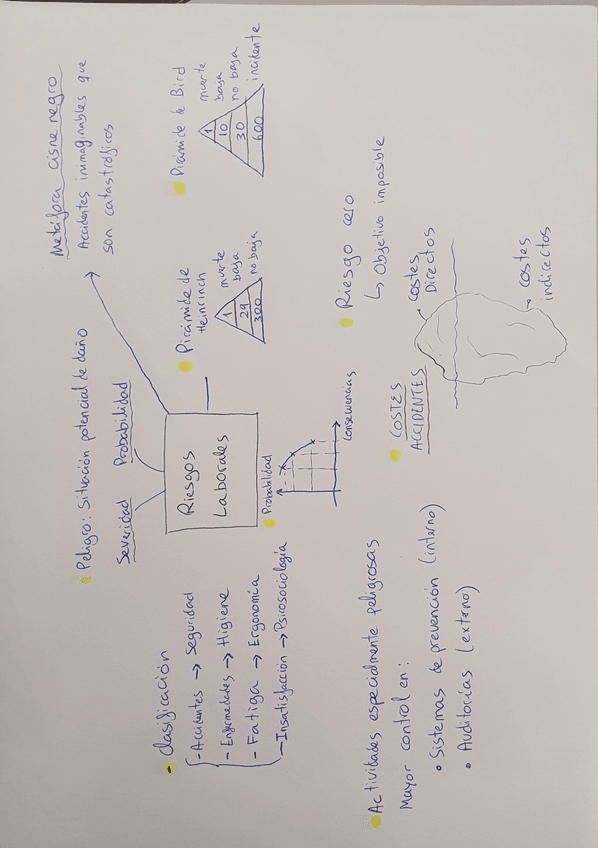 Peligro: Situación potencial de daño
Severidad
Probabilidad
Metáfora cisne negro
Accidentes inimaginables que
son catastróficos
Riesgos
Laborales
Clasificación
- Accidentes → Seguridad
- Enfermedades → Higiene
- Fatiga → Ergonomía
- Insatisfacción → Psicosociología
Probabilidad
Consecuencias
Pirámide de
Heinrinch
1 muerte
29 baja
300 no baja
Pirámide de Bird
1 muerte
10 baja
30 no baja
600 incidente
Actividades especialmente peligrosas
Mayor control en:
• Sistemas de prevención (interno)
• Auditorías (externo)
COSTES
ACCIDENTES
Costes
Directos
costes
indirectos
Riesgo cero
↳ Objetivo imposible